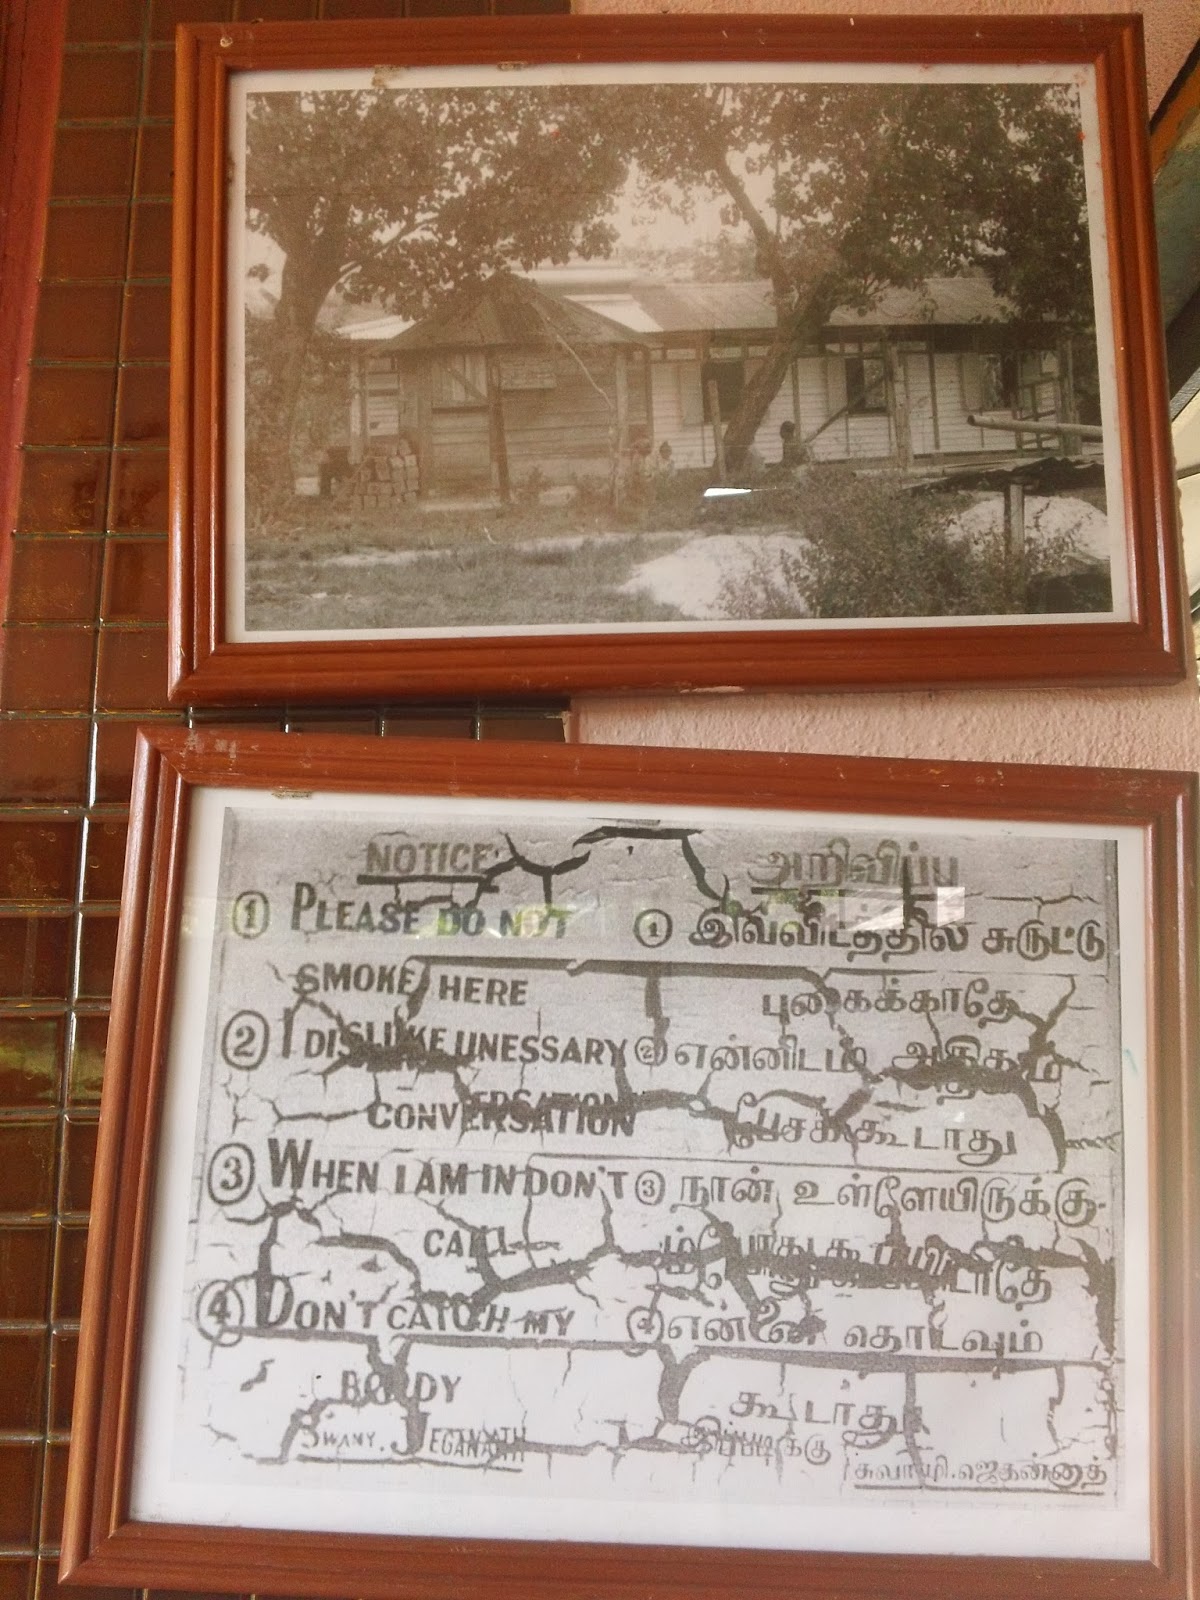 NOTICE
① PLEASE DO NOT
SMOKE HERE
② I DISLIKE UNESSARY
CONVERSATION
③ WHEN I AM IN DON'T
CALL
④ DON'T CATCH MY
BODY
SWANY. JEGANATH
அறிவிப்பு
① இவ்விடத்தில் சுருட்டு
புகைக்காதே
② என்னிடம் அதிகம்
பேசக்கூடாது
③ நான் உள்ளேயிருக்கு-
ம்போது கூப்பிடாதே
④ என்னை தொடவும்
கூடாது
இப்படிக்கு
சுவாமி.ஜெகன்னாத்